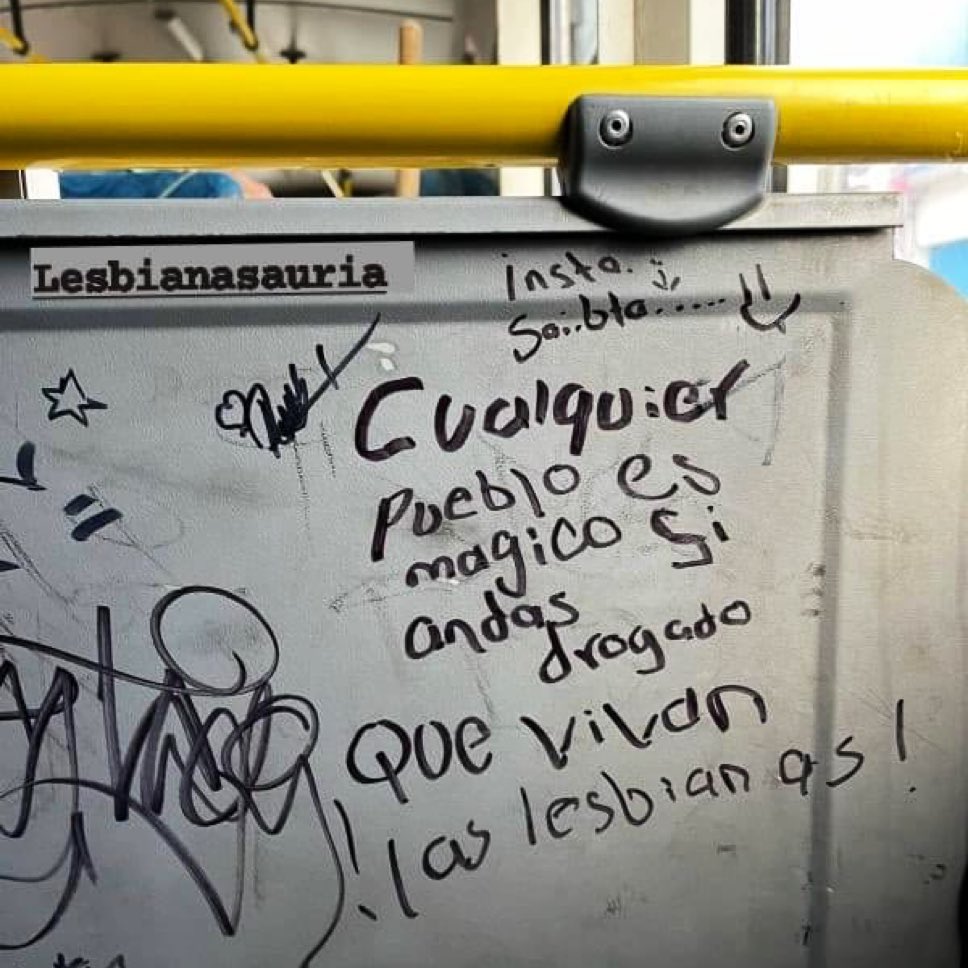 Lesbianasauria
insta.
Cualquier
pueblo es
magico si
andas
drogado
QUE vivan
!las lesbianas!